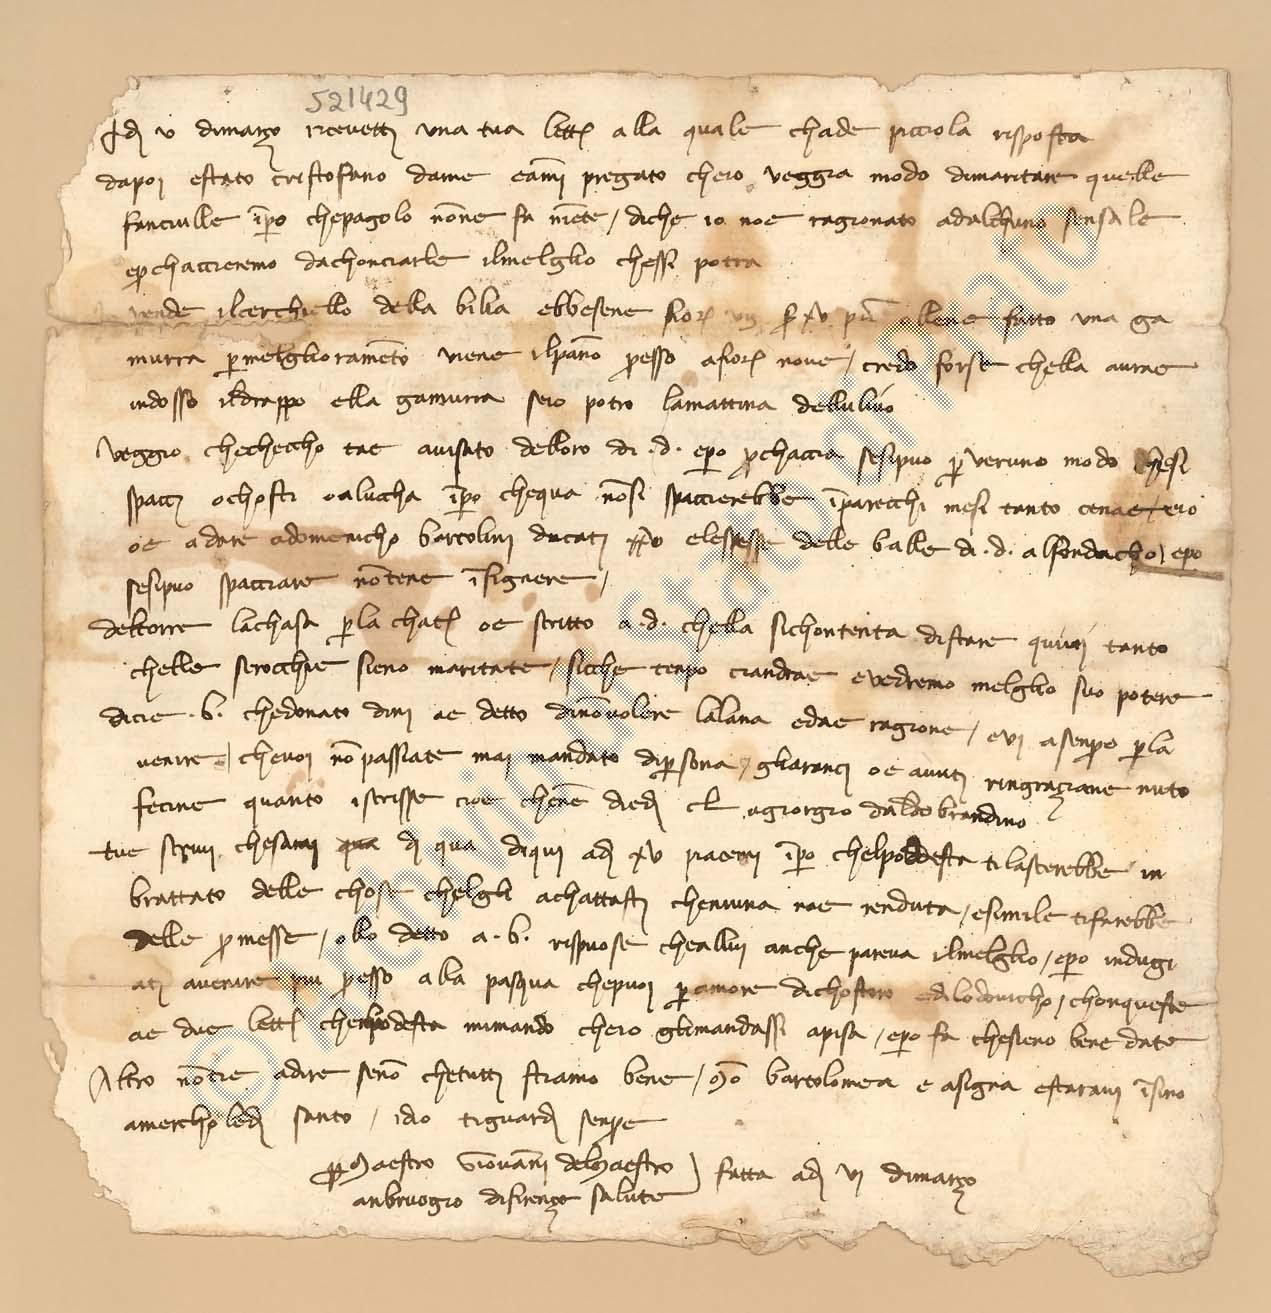 521429
Adj v dimarzo ricevettj una tua lettª alla quale chade picciola risposta
dapoj estato cristofano dame eāmj pregato cheio veggia modo dimaritare quelle
fanciulle īpo chepagolo nōne fa niēte / diche io noe ragionato adalchuno sensale
epchaccieremo dachonciarle ilmelglio chessi potra
vende ilcerchiello della bilia ebbesene fiorj pª xv più ollene fatto una ga
murra pmelglioramēto viene ilpāno presso afiorj nove / credo forse chella avrae
indosso ildrappo ella gamurra seio potro lamattina dellulivo
veggio chechecho tae avisato delloro di .d. epo prochaccia sesipuo p veruno modo chesi
spaccj ochostj oalucha īpo chequa nōsi spaccierebbe īparecchi mesi tanto cenae eio
oe adare adomenicho bartolini ducatj delle balle di .d. alfondacho / epo
sesipuo spacciare nōtene īfignere /
deltorre lachasa pla chatª oe scritto a .d. chella sichontenta distare quivj tanto
chelle serocchie sieno maritate / sicche tenpo ciandrae evedremo melglio suo potere
dicie .b. chedonato dinj ae detto dinōvolere lalana edae ragione / evj asenpe pla
venire / chevoj nōpassiate maj mandato dipsona / gliarancj oe avutj ringraziane nuto
fecine quanto iscrisse cioe chenē diedj cl agiorgio daldobrandino
tue scrivj chesamj qua dj qua diquj adj xv piacemj īpo chelpodesta tilascierebbe in
brattato delle chose chelglj achattastj cheniuna nae renduta / esimile tifarebbe
delle promesse / ollo detto a .b. rispuose cheallui anche pareva ilmelglio / epo indugi
atj avenire piu presso alla pasqua chepuoj pamore dichostoro edilodovicho / chonqueste
ae due lettª chelpodesta mimando cheio glimandassi apisa / epo fa chesieno bene date
Altro nōtie adire senō chetuttj stiamo bene / Mª bartolomea e asigna estaravj īsino
amercholedj santo / idio tiguardj senpre
p Maestro Giovannj delMaestro
anbruogio difirenze salute
fatta adj vj dimarzo